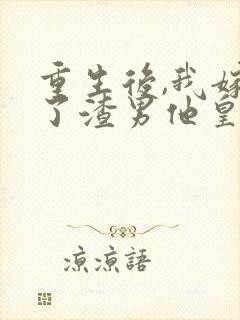 重生後,我嫁
了渣男他皇
涼涼語